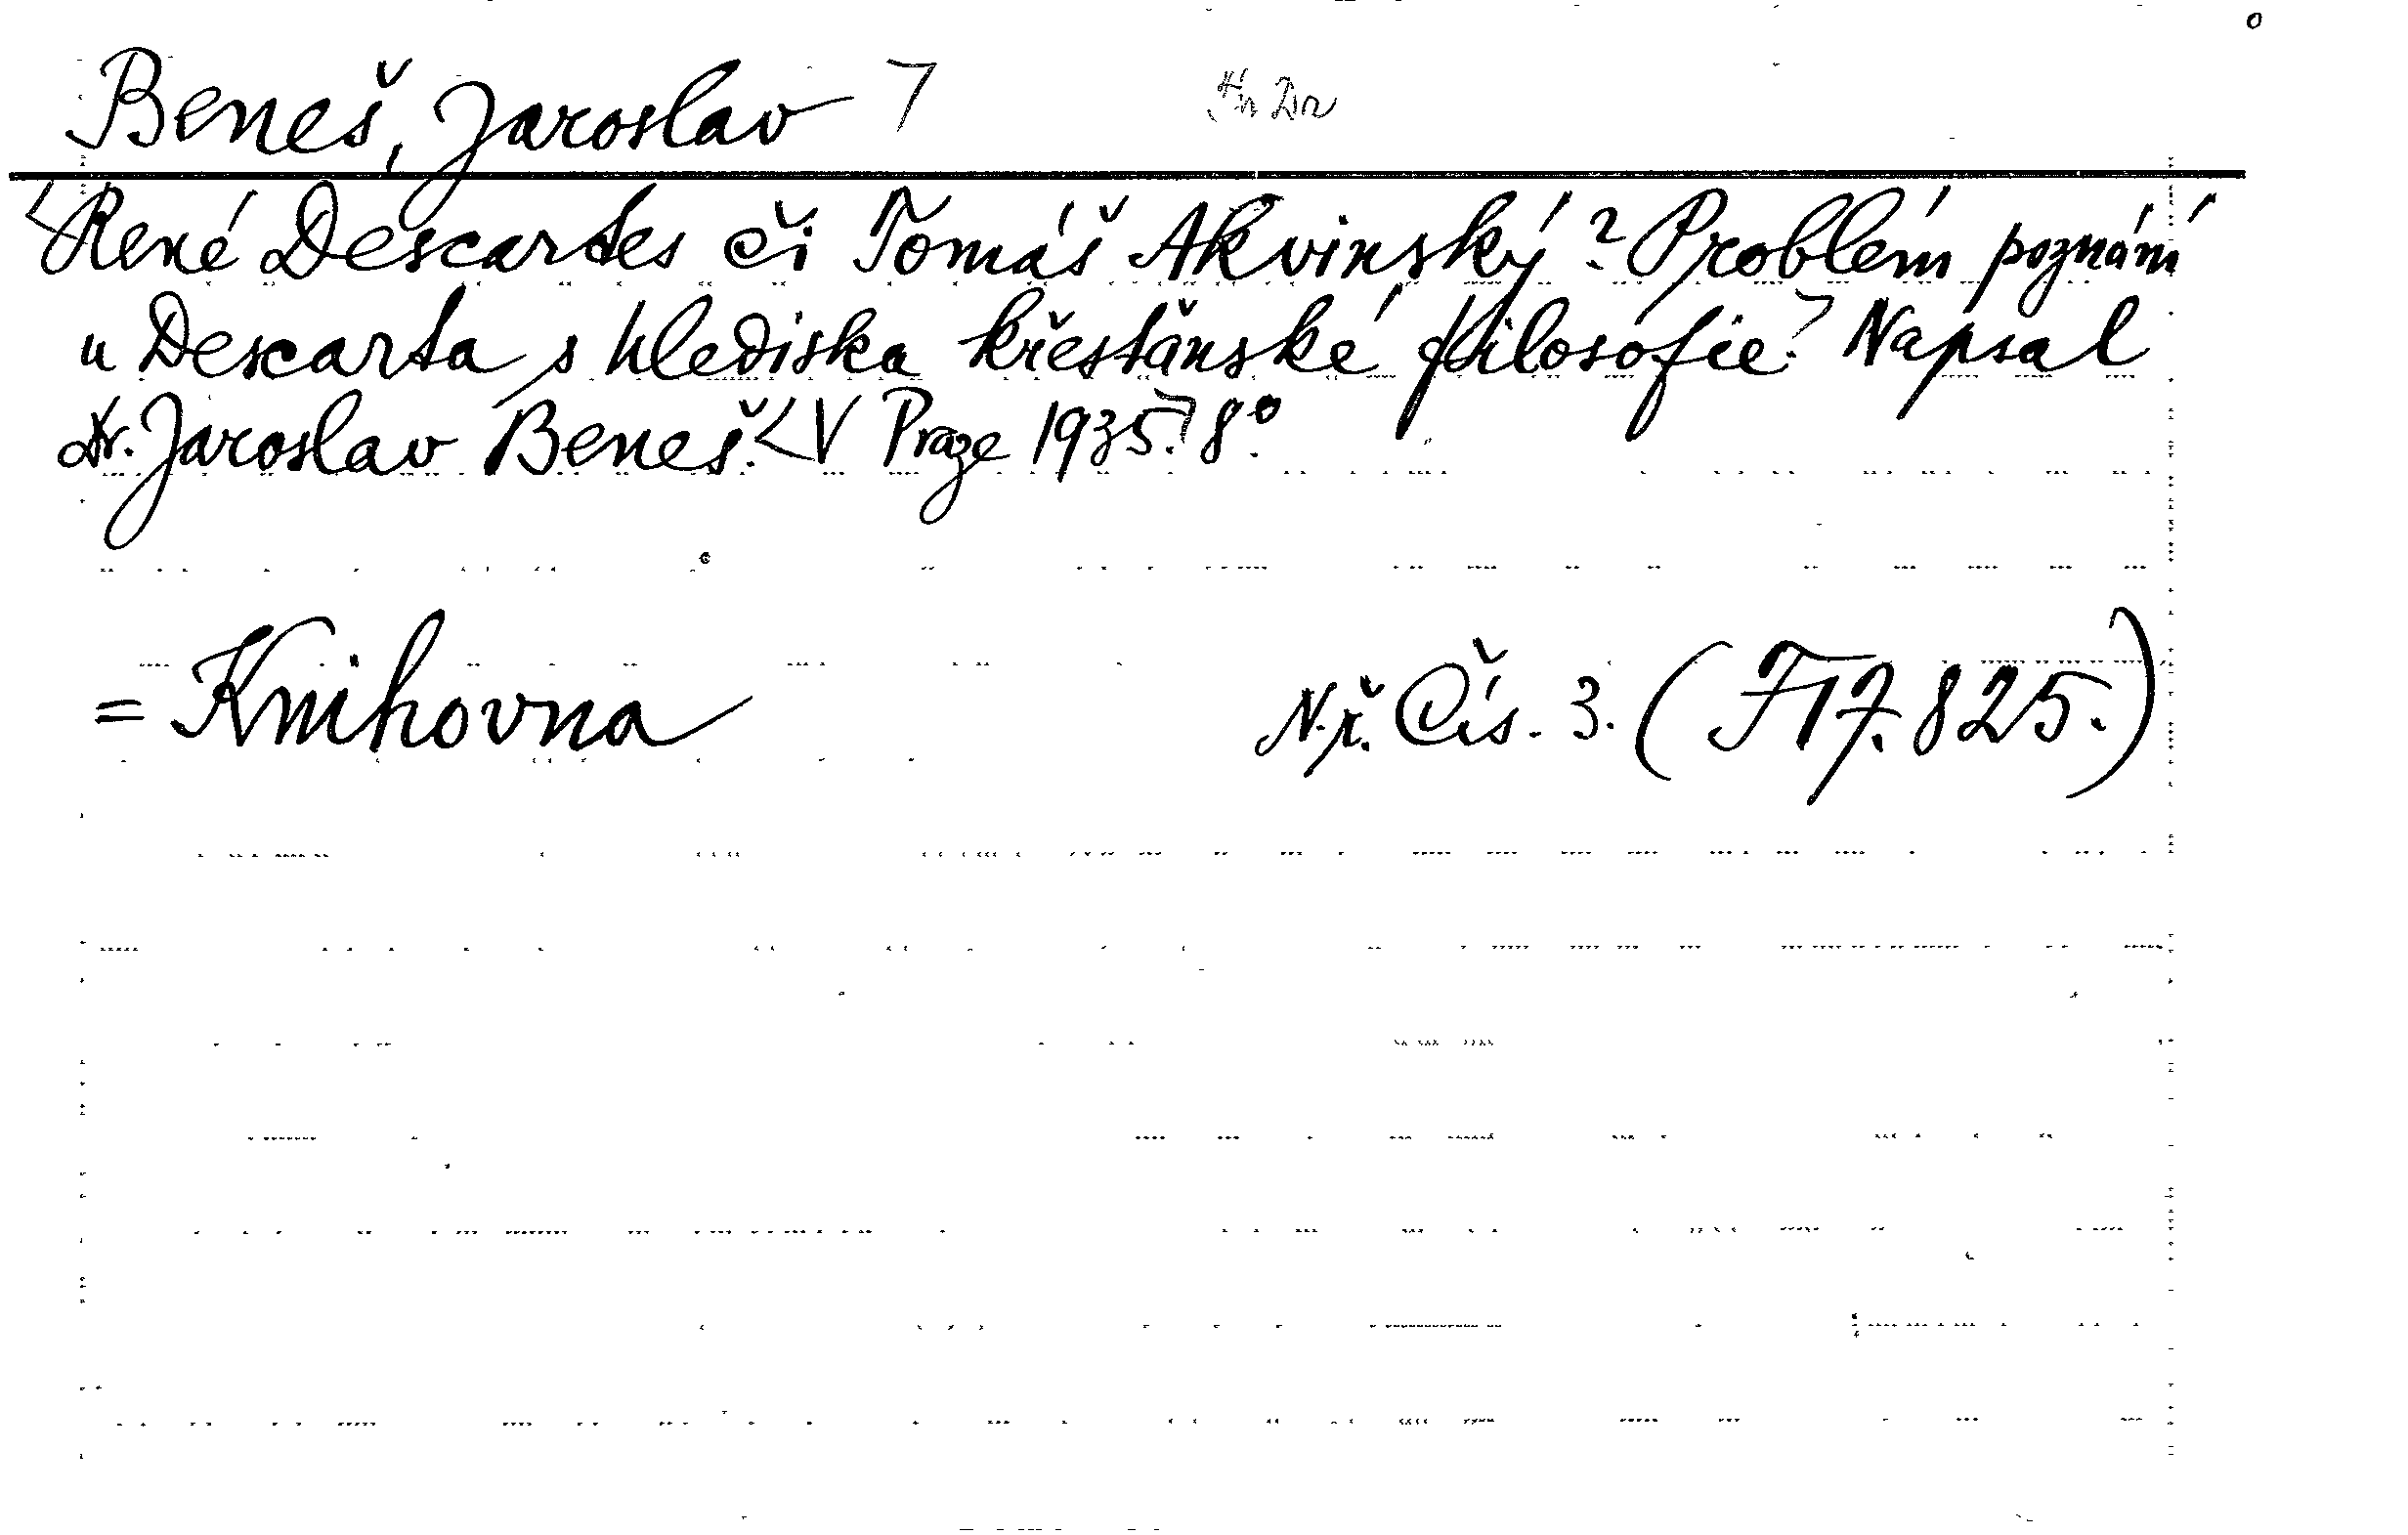 Beneš, Jaroslav
René Descartes či Tomáš Akvinský? Problém poznání
u Descarta s hlediska křesťánské filosofie. Napsal
Dr. Jaroslav Beneš. V Praze 1935. 8°.
= Knihovna N.ř. Čís. 3. (F 17.825.)